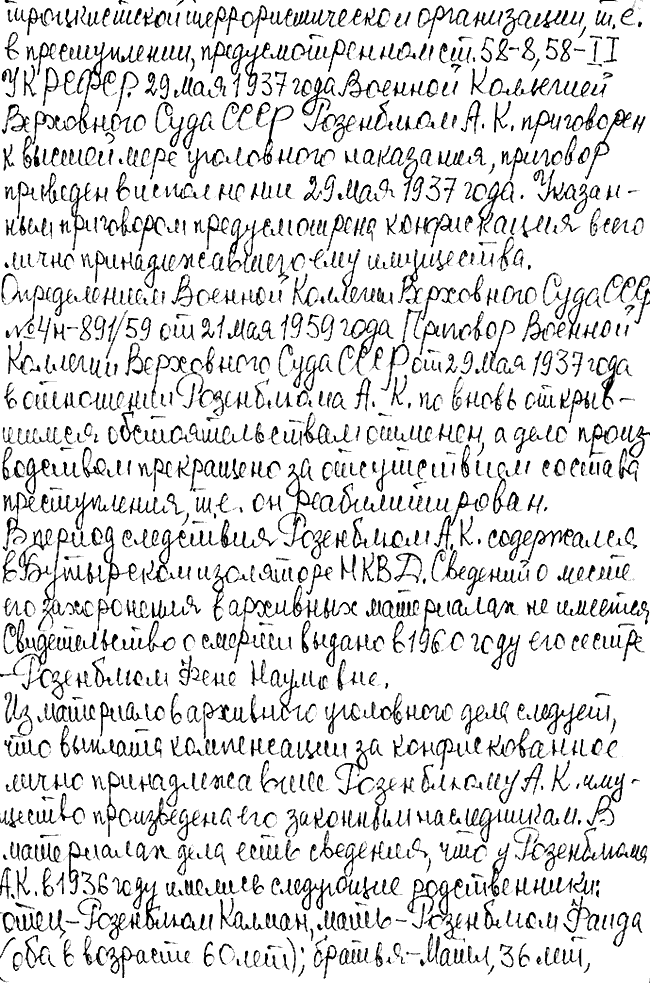 троцкистской террористической организации, т.е.
в преступлении, предусмотренном ст. 58-8, 58-II
УК РСФСР. 29 мая 1937 года Военной Коллегией
Верховного Суда СССР Розенблюм А.К. приговорен
к высшей мере уголовного наказания, приговор
приведен в исполнении 29 мая 1937 года. Указан-
ным приговором предусмотрена конфискация всего
лично принадлежавшего ему имущества.
Определением Военной Коллегии Верховного Суда СССР
№4н-891/59 от 21 мая 1959 года Приговор Военной
Коллегии Верховного Суда СССР от 29 мая 1937 года
в отношении Розенблюма А.К. по вновь открыв-
шимся обстоятельствам отменен, а дело произ-
водством прекращено за отсутствием состава
преступления, т.е. он реабилитирован.
В период следствия Розенблюм А.К. содержался
в Бутырском изоляторе НКВД. Сведений о месте
его захоронения в архивных материалах не имеется
Свидетельство о смерти выдано в 1960 году его сестре
-Розенблюм Фене Наумовне.
Из материалов архивного уголовного дела следует,
что выплата компенсации за конфискованное
лично принадлежавшее Розенблюму А.К. иму-
щество произведена его законным наследникам. В
материалах дела есть сведения, что у Розенблюма
А.К. в 1936 году имелись следующие родственники:
отец-Розенблюм Калман, мать-Розенблюм Фаида
(оба в возрасте 60 лет); братья-Майл, 36 лет,